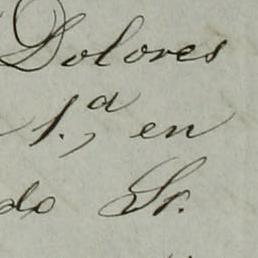 Dolores
1.ª, en
do Sr.